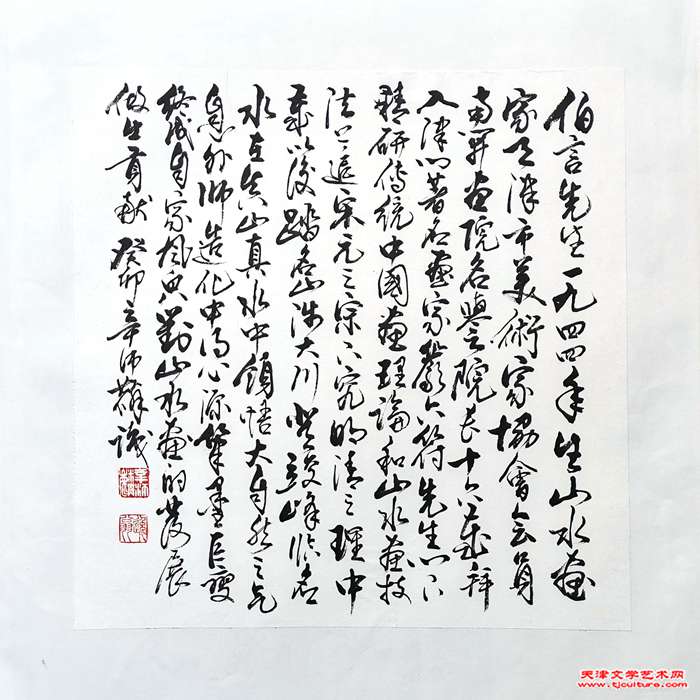 伯言先生一九四四年生山水畫
家天津市美術家協會會員
南開畫院名譽院長十六歲拜
入津門著名畫家嚴六符先生門下
精研傳統中國畫理論和山水畫技
法上追宋元之宗下究明清之理中
歲以後踏名山涉大川登峻峰臨名
水在真山真水中領悟大自然之氣
息外師造化中得心源筆墨巨變
終成自家風貌對山水畫的發展
做出貢獻 癸卯 辛沛群識
天津文学艺术网
www.tjculture.com